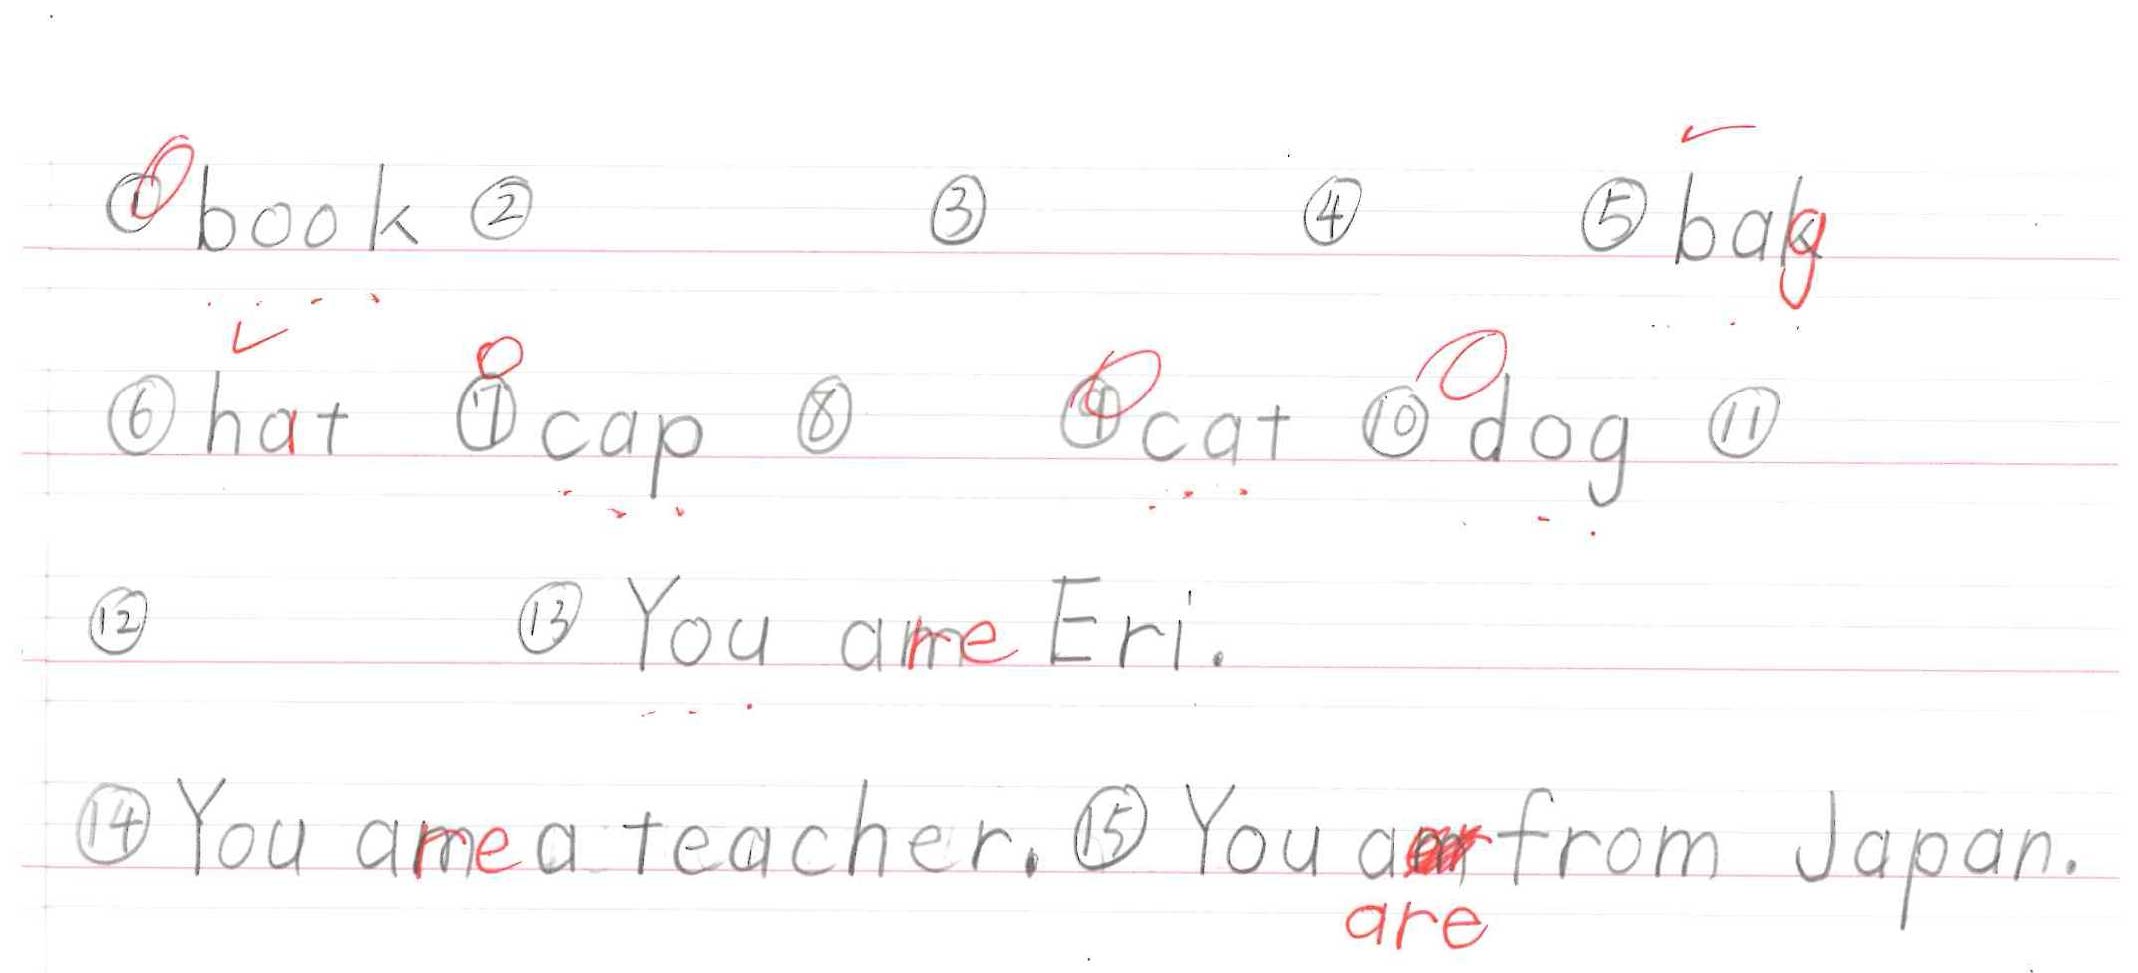 ① book ② ③ ④ ⑤ bag
⑥ hat ⑦ cap ⑧ ⑨ cat ⑩ dog ⑪
⑫ ⑬ You are Eri.
⑭ You are a teacher. ⑮ You a from Japan.
are